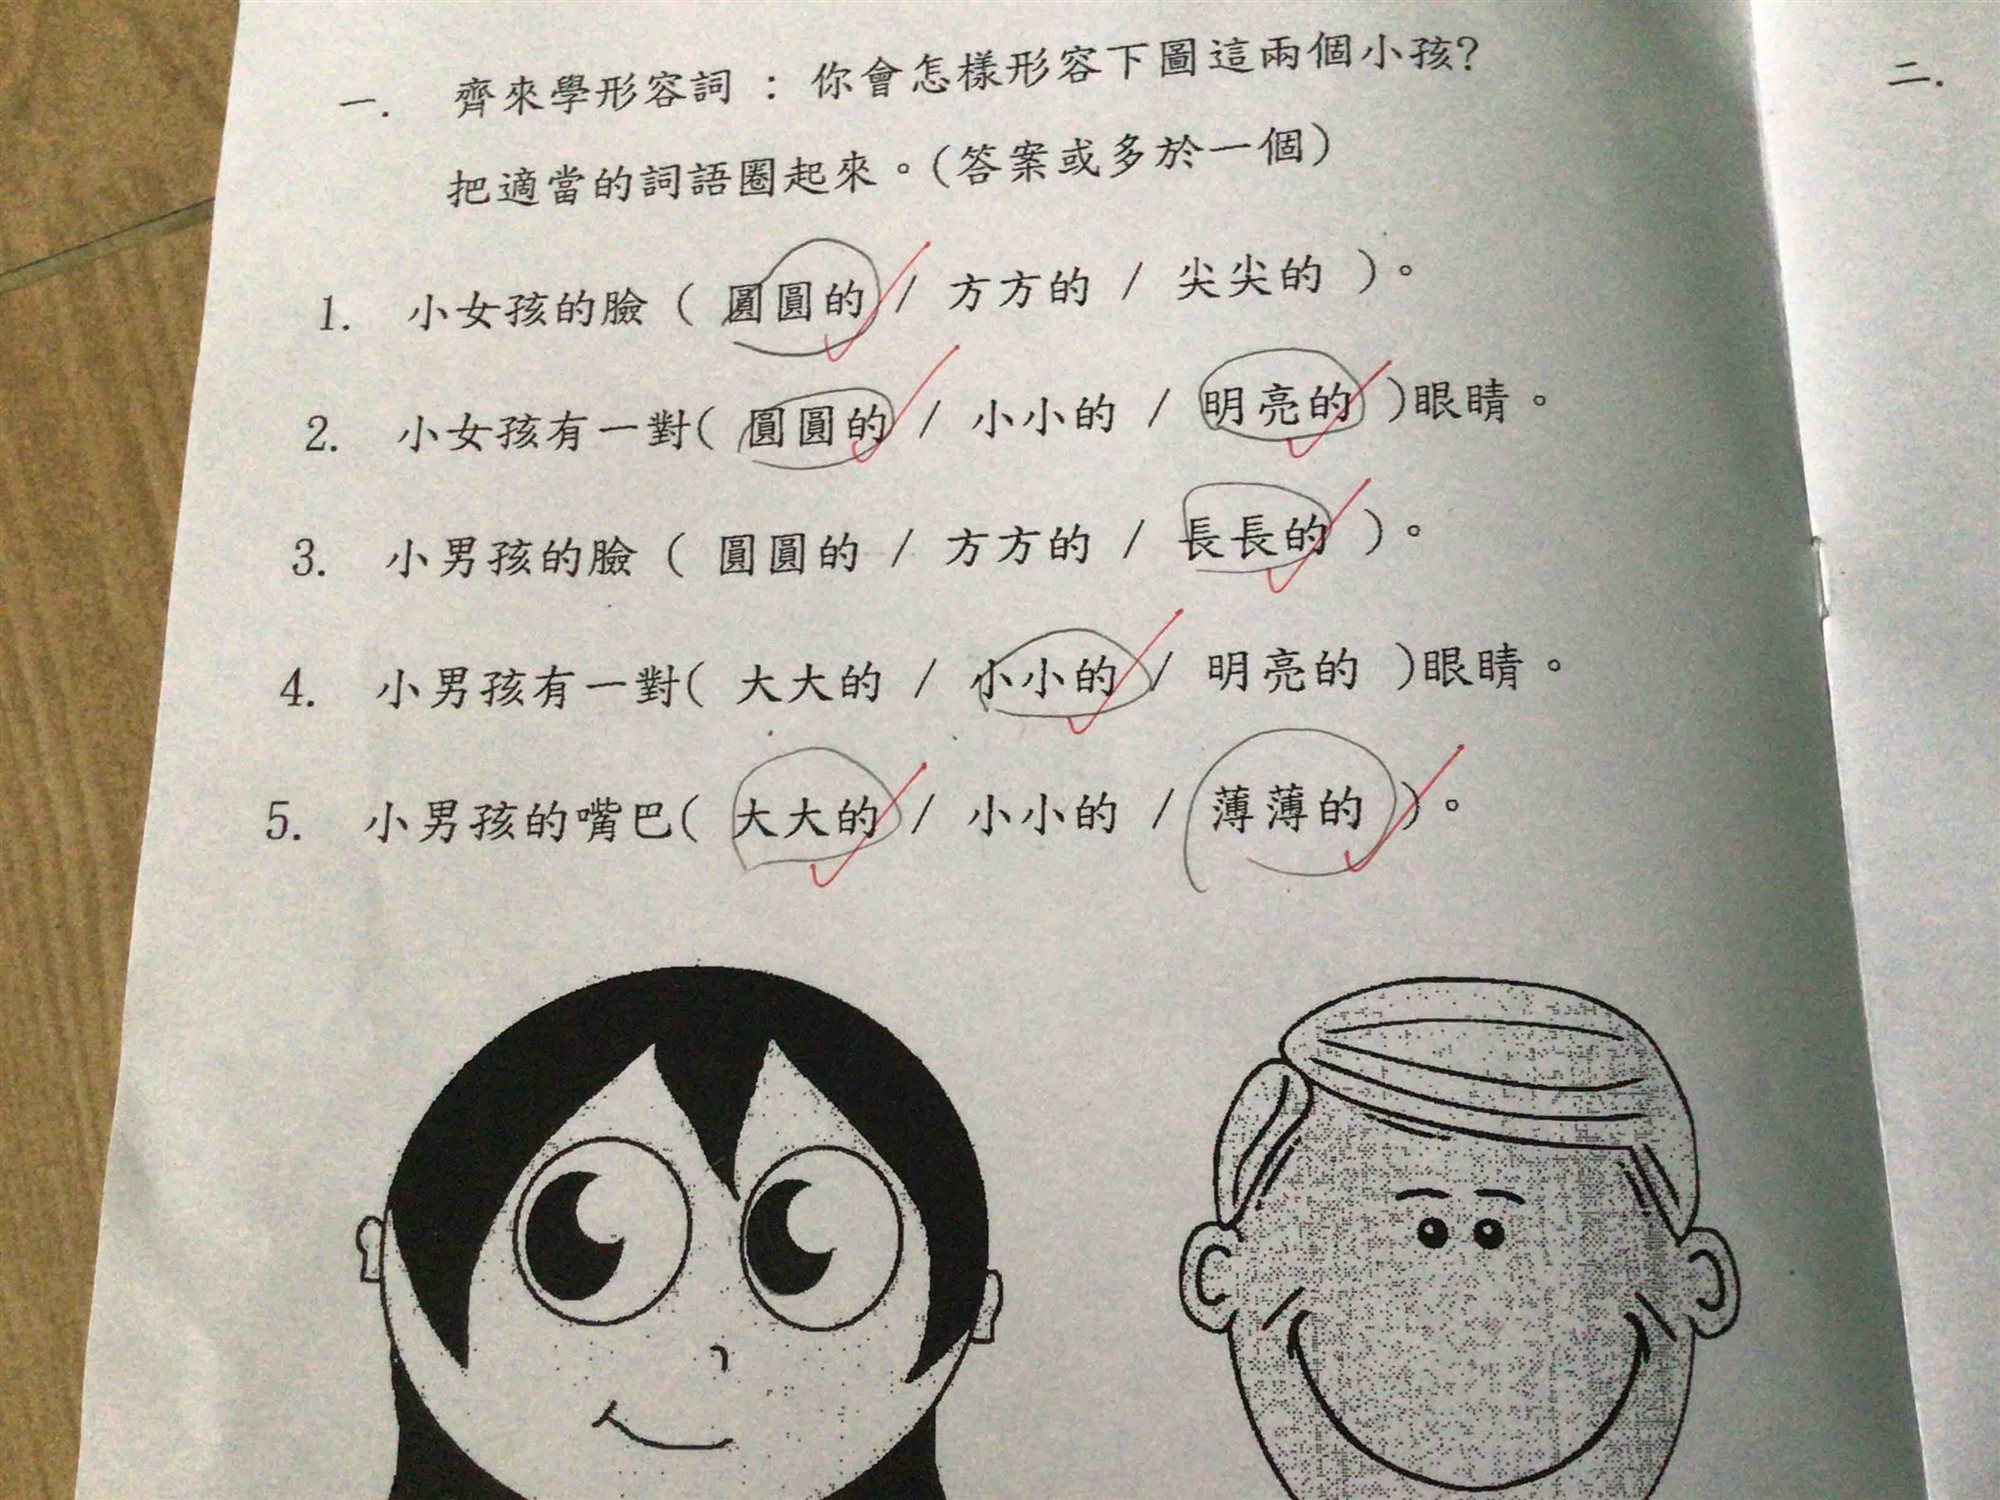 一. 齊來學形容詞 : 你會怎樣形容下圖這兩個小孩?
把適當的詞語圈起來。(答案或多於一個)
1. 小女孩的臉 ( 圓圓的 / 方方的 / 尖尖的 )。
2. 小女孩有一對( 圓圓的 / 小小的 / 明亮的 )眼睛。
3. 小男孩的臉 ( 圓圓的 / 方方的 / 長長的 )。
4. 小男孩有一對( 大大的 / 小小的 / 明亮的 )眼睛。
5. 小男孩的嘴巴( 大大的 / 小小的 / 薄薄的 )。
二.